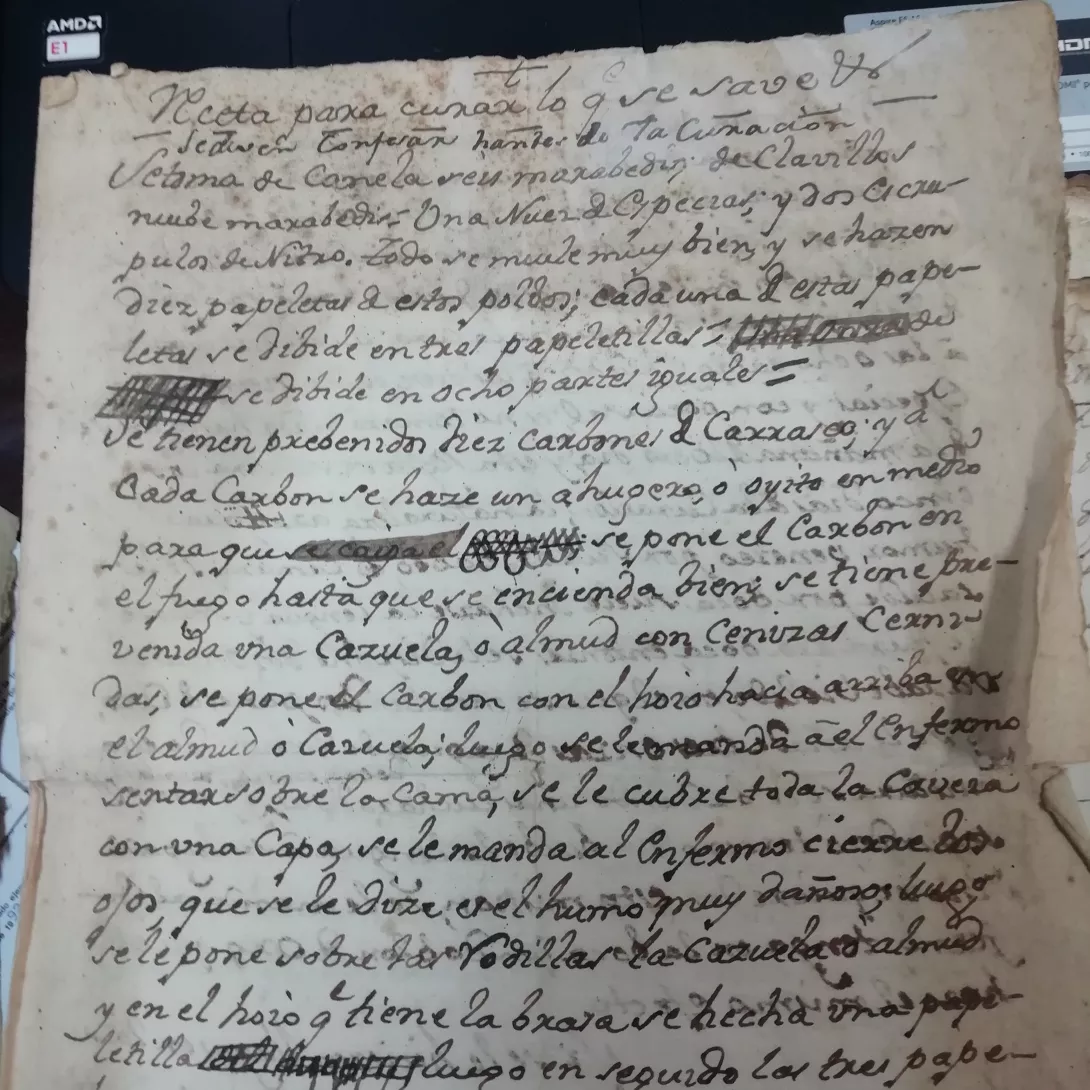 AMD
E1
Receta para curar lo q se save
se deven Confesar hantes de la Curación
Setoma de Canela seis marabedis; de Clavillos
nuebe marabedis= Una Nuez de Especias; y dos Escru-
pulos de Nitro. Todo se muele muy bien, y se hazen
diez papeletas de estos polbos; cada una de estas pape-
letas se dibide en tres papeletillas= Una onza de
se dibide en ocho partes iguales=
se tienen prebenidos diez carbones de Carrasco; y a
Cada Carbon se haze un ahugero, ò oyito en medio
para que se caiga el se pone el Carbon en
el fuego hasta que se encienda bien; se tiene pre-
venida vna Cazuela, ò almud con Cenizas Cerni-
das, se pone el Carbon con el hoio hacia arriba en
el almud ò Cazuela; luego se le manda a el Enfermo
sentar sobre la Cama, se le cubre toda la Caveza
con vna Capa, se le manda al Enfermo cierre los
ojos, que se le dize, es el humo muy dañoso; luego
se le pone sobre las Rodillas la Cazuela ò almud
y en el hoio q tiene la brasa se hecha vna pape-
letilla luego en seguido las tres pape-